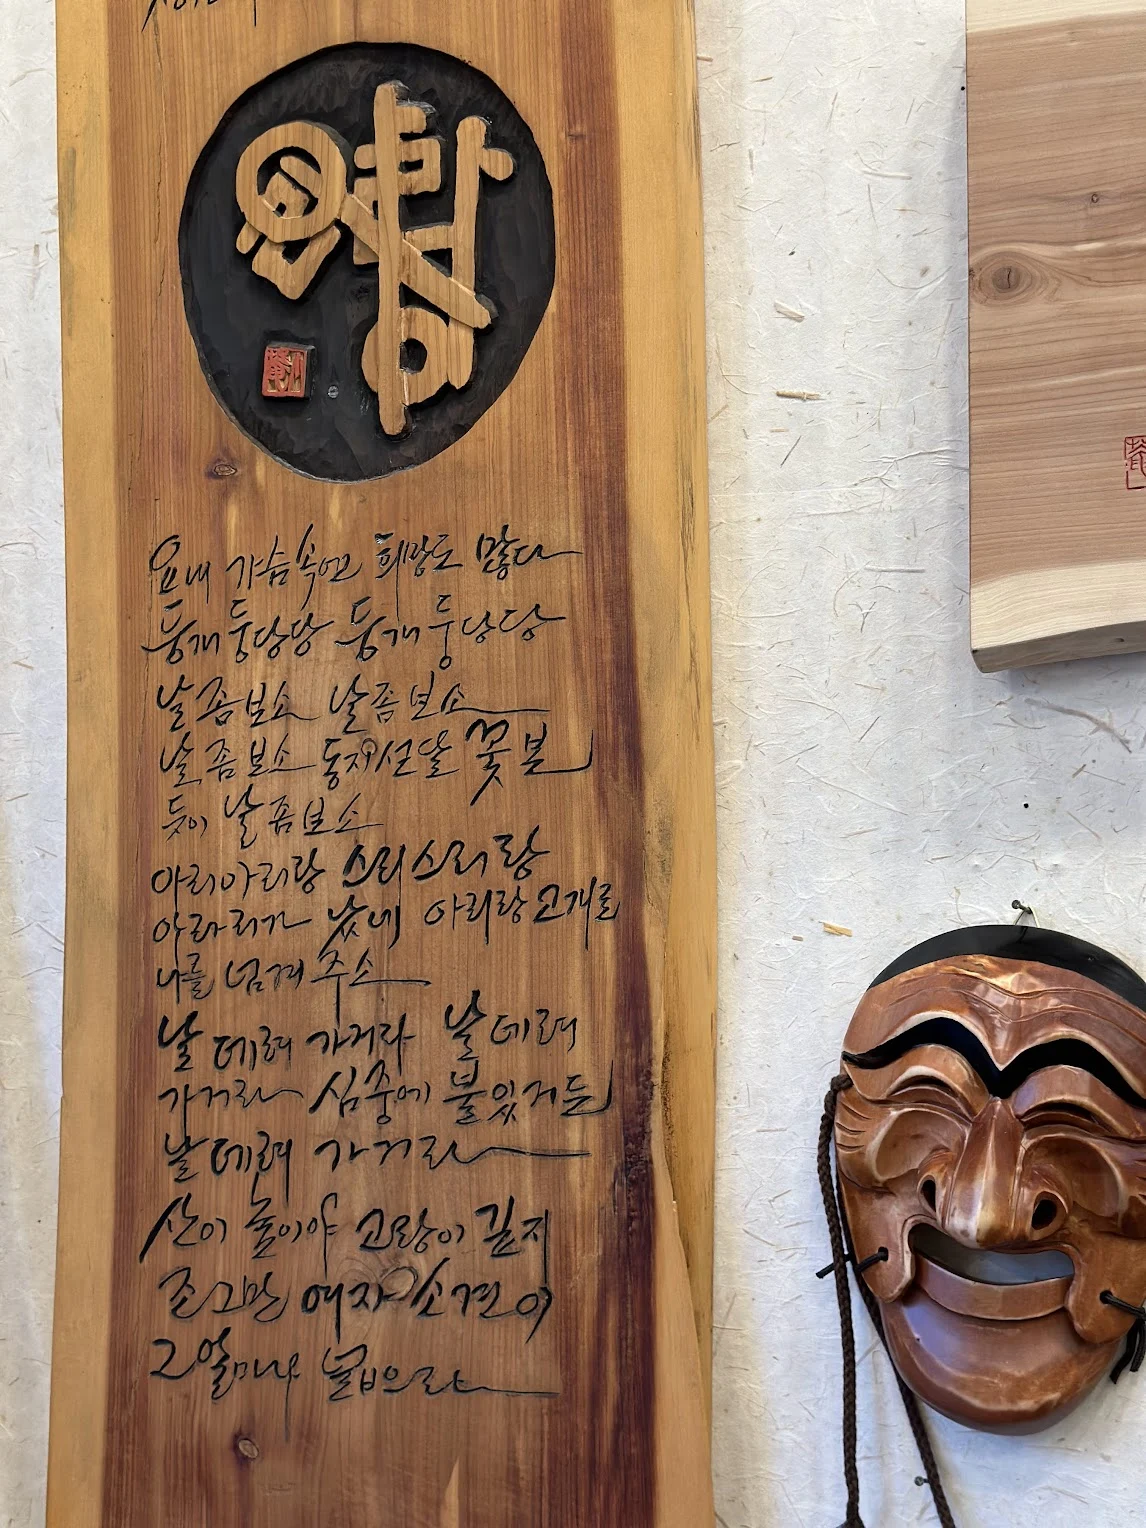 요내 가슴속엔 희망도 많다
둥개둥당당 둥개둥당당
날좀보소 날좀보소
날좀보소 동지섣달 꽃본
듯이 날좀보소
아리아리랑 스리스리랑
아라리가 났네 아리랑고개로
나를 넘겨주소
날 데려 가거라 날 데려
가거라 심중에 불있거든
날데려 가거라
산이 높이야 고랑이 깊지
존그만 여자 소견이
그얼마나 넓으랴